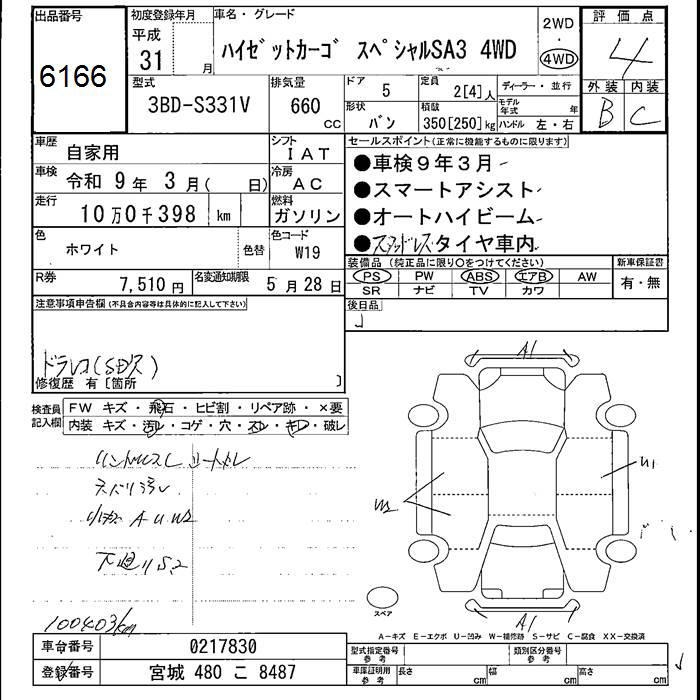 出品番号 初度登録年月 車名・グレード 2WD 評価点
6166 平成 31 月 ハイゼットカーゴ スペシャルSA3 4WD ・ 4WD 4
型式 排気量 ドア 定員 ディーラー・並行 外装 内装
3BD-S331V 660 cc 5 2[4]人 モデル年式 年 B C
形状 バン 積載 350[250]kg ハンドル 左・右
車歴 自家用 シフト IAT セールスポイント(正常に機能するものに限ります)
車検 令和 9年 3月( 日) 冷房 AC ●車検9年3月
●スマートアシスト
走行 10万0千398 km 燃料 ガソリン ●オートハイビーム
色 ホワイト 色替 色コード W19 ●スタッドレスタイヤ車内
装備品(純正品に限り○をつけてください) 新車保証書
R券 7,510円 名変通知期限 5月28日 PS PW ABS エアB AW 有・無
SR ナビ TV カワ
注意事項申告欄(不具合内容等は具体的に記入して下さい) 後日品
ドラレコ
修復歴 有〔箇所 〕
検査員記入欄 FW キズ・飛石・ヒビ割・リペア跡・×要
内装 キズ・汚レ・コゲ・穴・スレ・キレ・破レ
A1
U1
U2
100403km
スペア
A1
A-キズ E-エクボ U-凹み W-補修跡 S-サビ C-腐食 XX-交換済
車台番号 0217830 型式指定番号 参考 類別区分番号 参考
登録番号 宮城 480 こ 8487 車庫証明用 参考 長さ cm 幅 cm 高さ cm